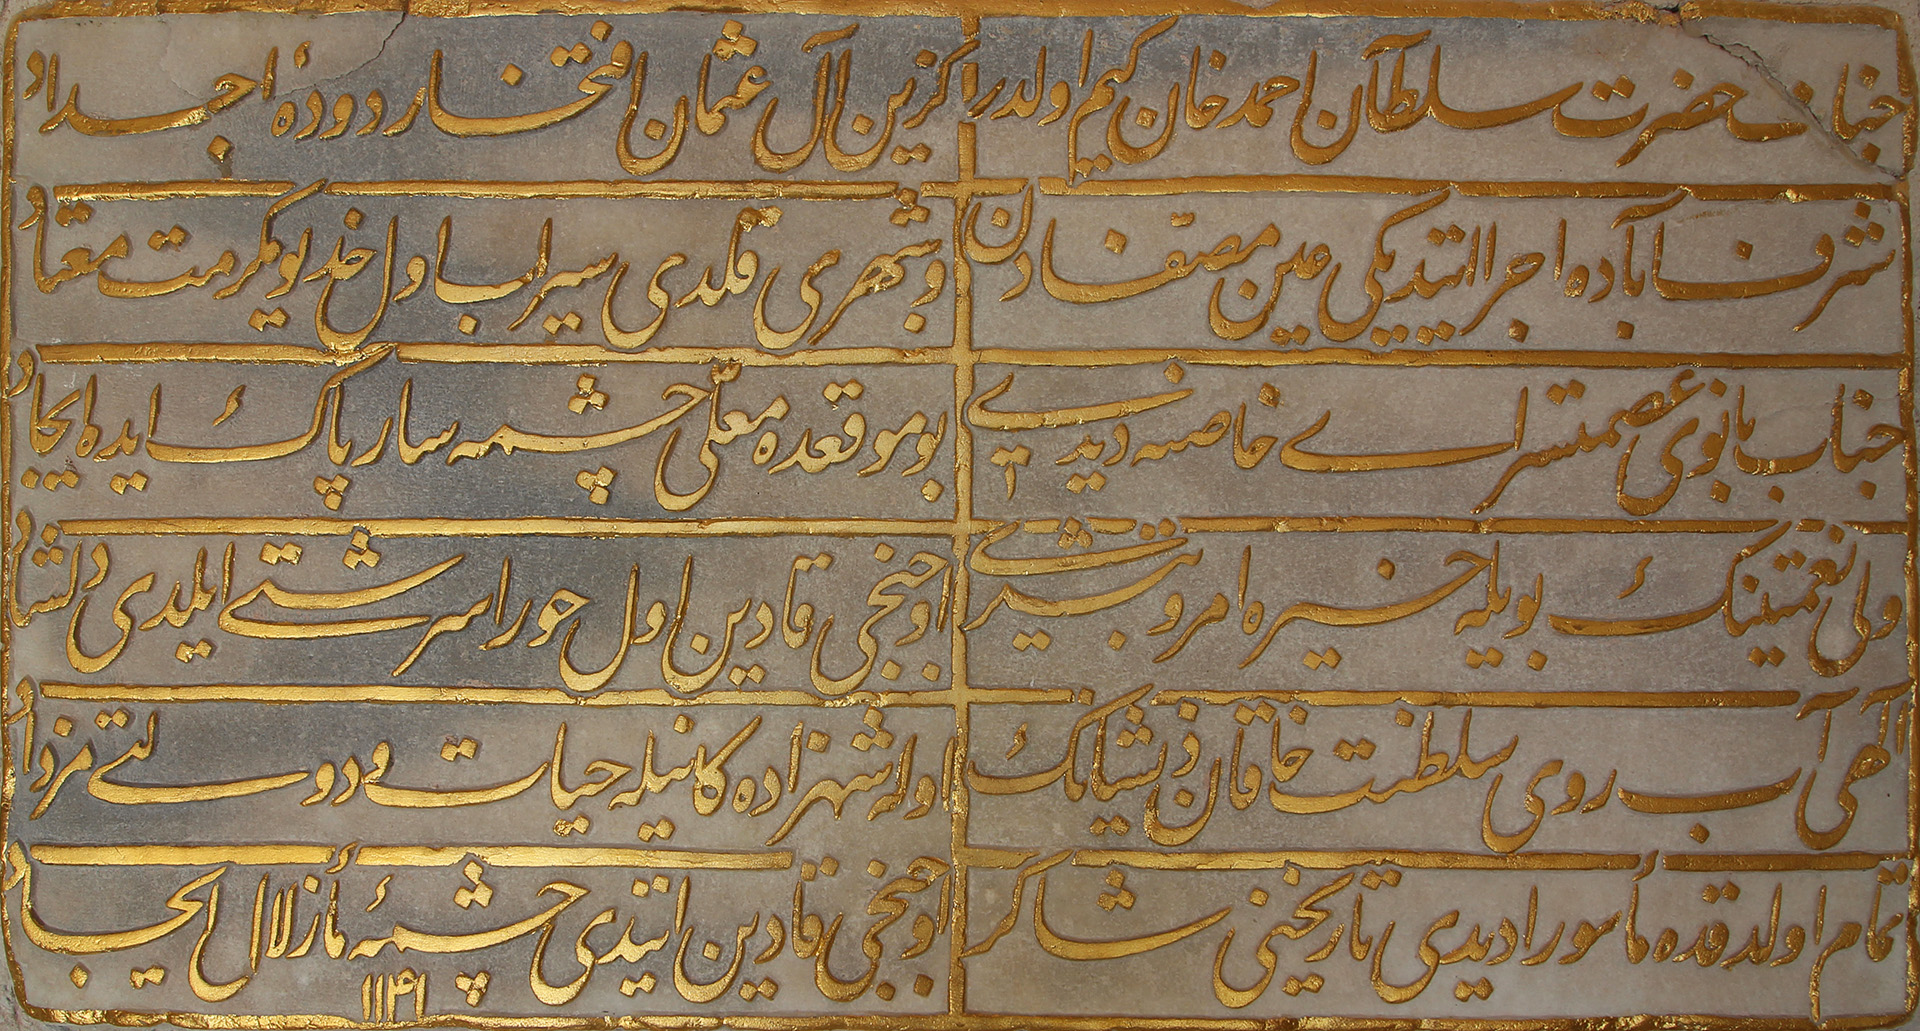 جناب حضرت سلطان احمد خان كيم اولدر
اكزين آل عثمان افتخار دودهٔ اجداد
شرف آباده اجرا ايتديكى عين مصفادن
وشهرى قلدى سيراب اول خديو مكرمت معتاد
جناب بانوى عصمتسراے خاصه ديديے
بو موقعده معلى چشمه سار پاك ايده ايجاد
ولى نعمتينك بويله خيره امرو تبشيرے
اوچنجى قادين اول حورا سرشتے ايلدى دلشاد
الهى آب روى سلطنت خاقان ذيشانك
اوله شهزاده كانيله حيات ودولتے مزداد
تمام اولدقده مأمورا ديدى تاريخنى شاكر
اوچنجى قادين ايتدى چشمهٔ ماء زلال ايجاد
١١٤١